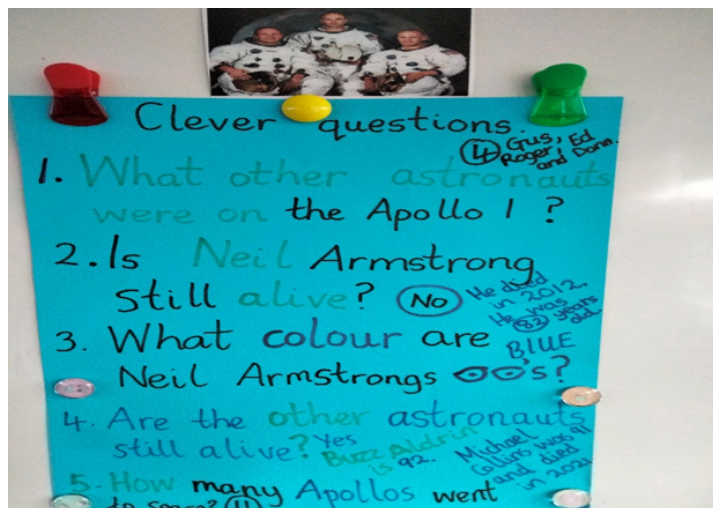 Clever questions.
④ Gus,
Roger, Ed
and Donn.
1. What other astronauts
were on the Apollo 1 ?
2. Is Neil Armstrong
still alive? No
He died
in 2012.
He was
82 years
old.
3. What colour are
BlUE
Neil Armstrongs 's?
4. Are the other astronauts
still alive? Yes
Buzz Aldrin
is 92.
Michael
Collins was 91
and died
in 2021
5. How many Apollos went
to space? 11